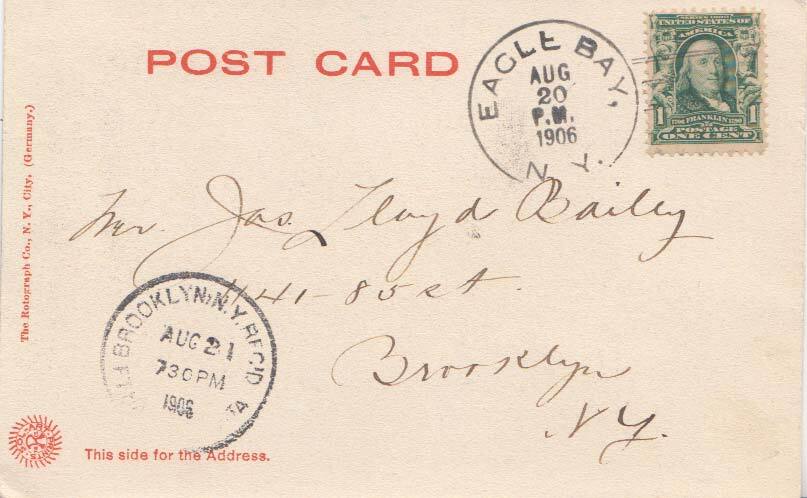 POST CARD
EAGLE BAY,
AUG
20
P.M.
1906
N. Y.
SERIES 1902
UNITED STATES OF
AMERICA
1 FRANKLIN 1
POSTAGE
ONE CENT
The Rotograph Co., N. Y., City. (Germany.)
Mr. Jas. Lloyd Bailey
441-85 st.
Brooklyn
NY.
BROOKLYN, N.Y. REC'D
AUG 21
730 PM
1906
This side for the Address.